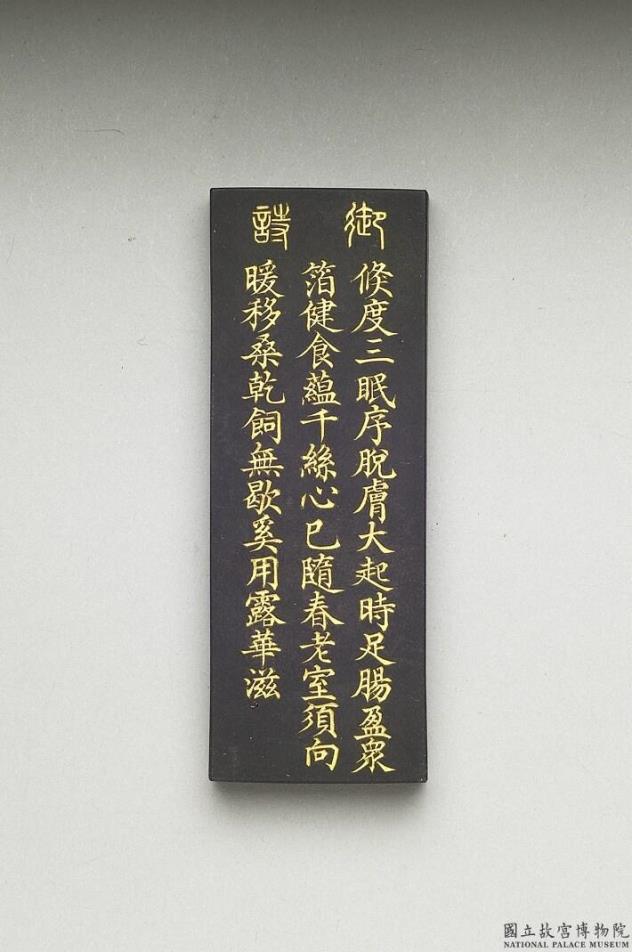 御詩
倐度三眠序脫膚大起時足腸盈衆
箔健食蘊千絲心已隨春老室須向
暖移桑乾飼無歇奚用露華滋
國立故宮博物院
NATIONAL PALACE MUSEUM